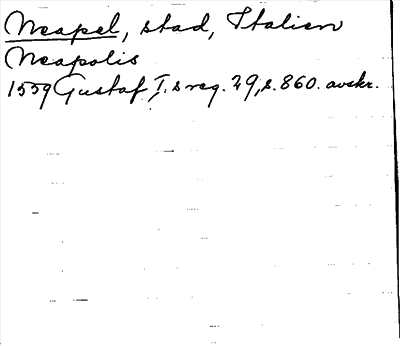 Neapel, stad, Italien
Neapolis
1559 Gustaf I.s reg. 29, s. 860. avskr.